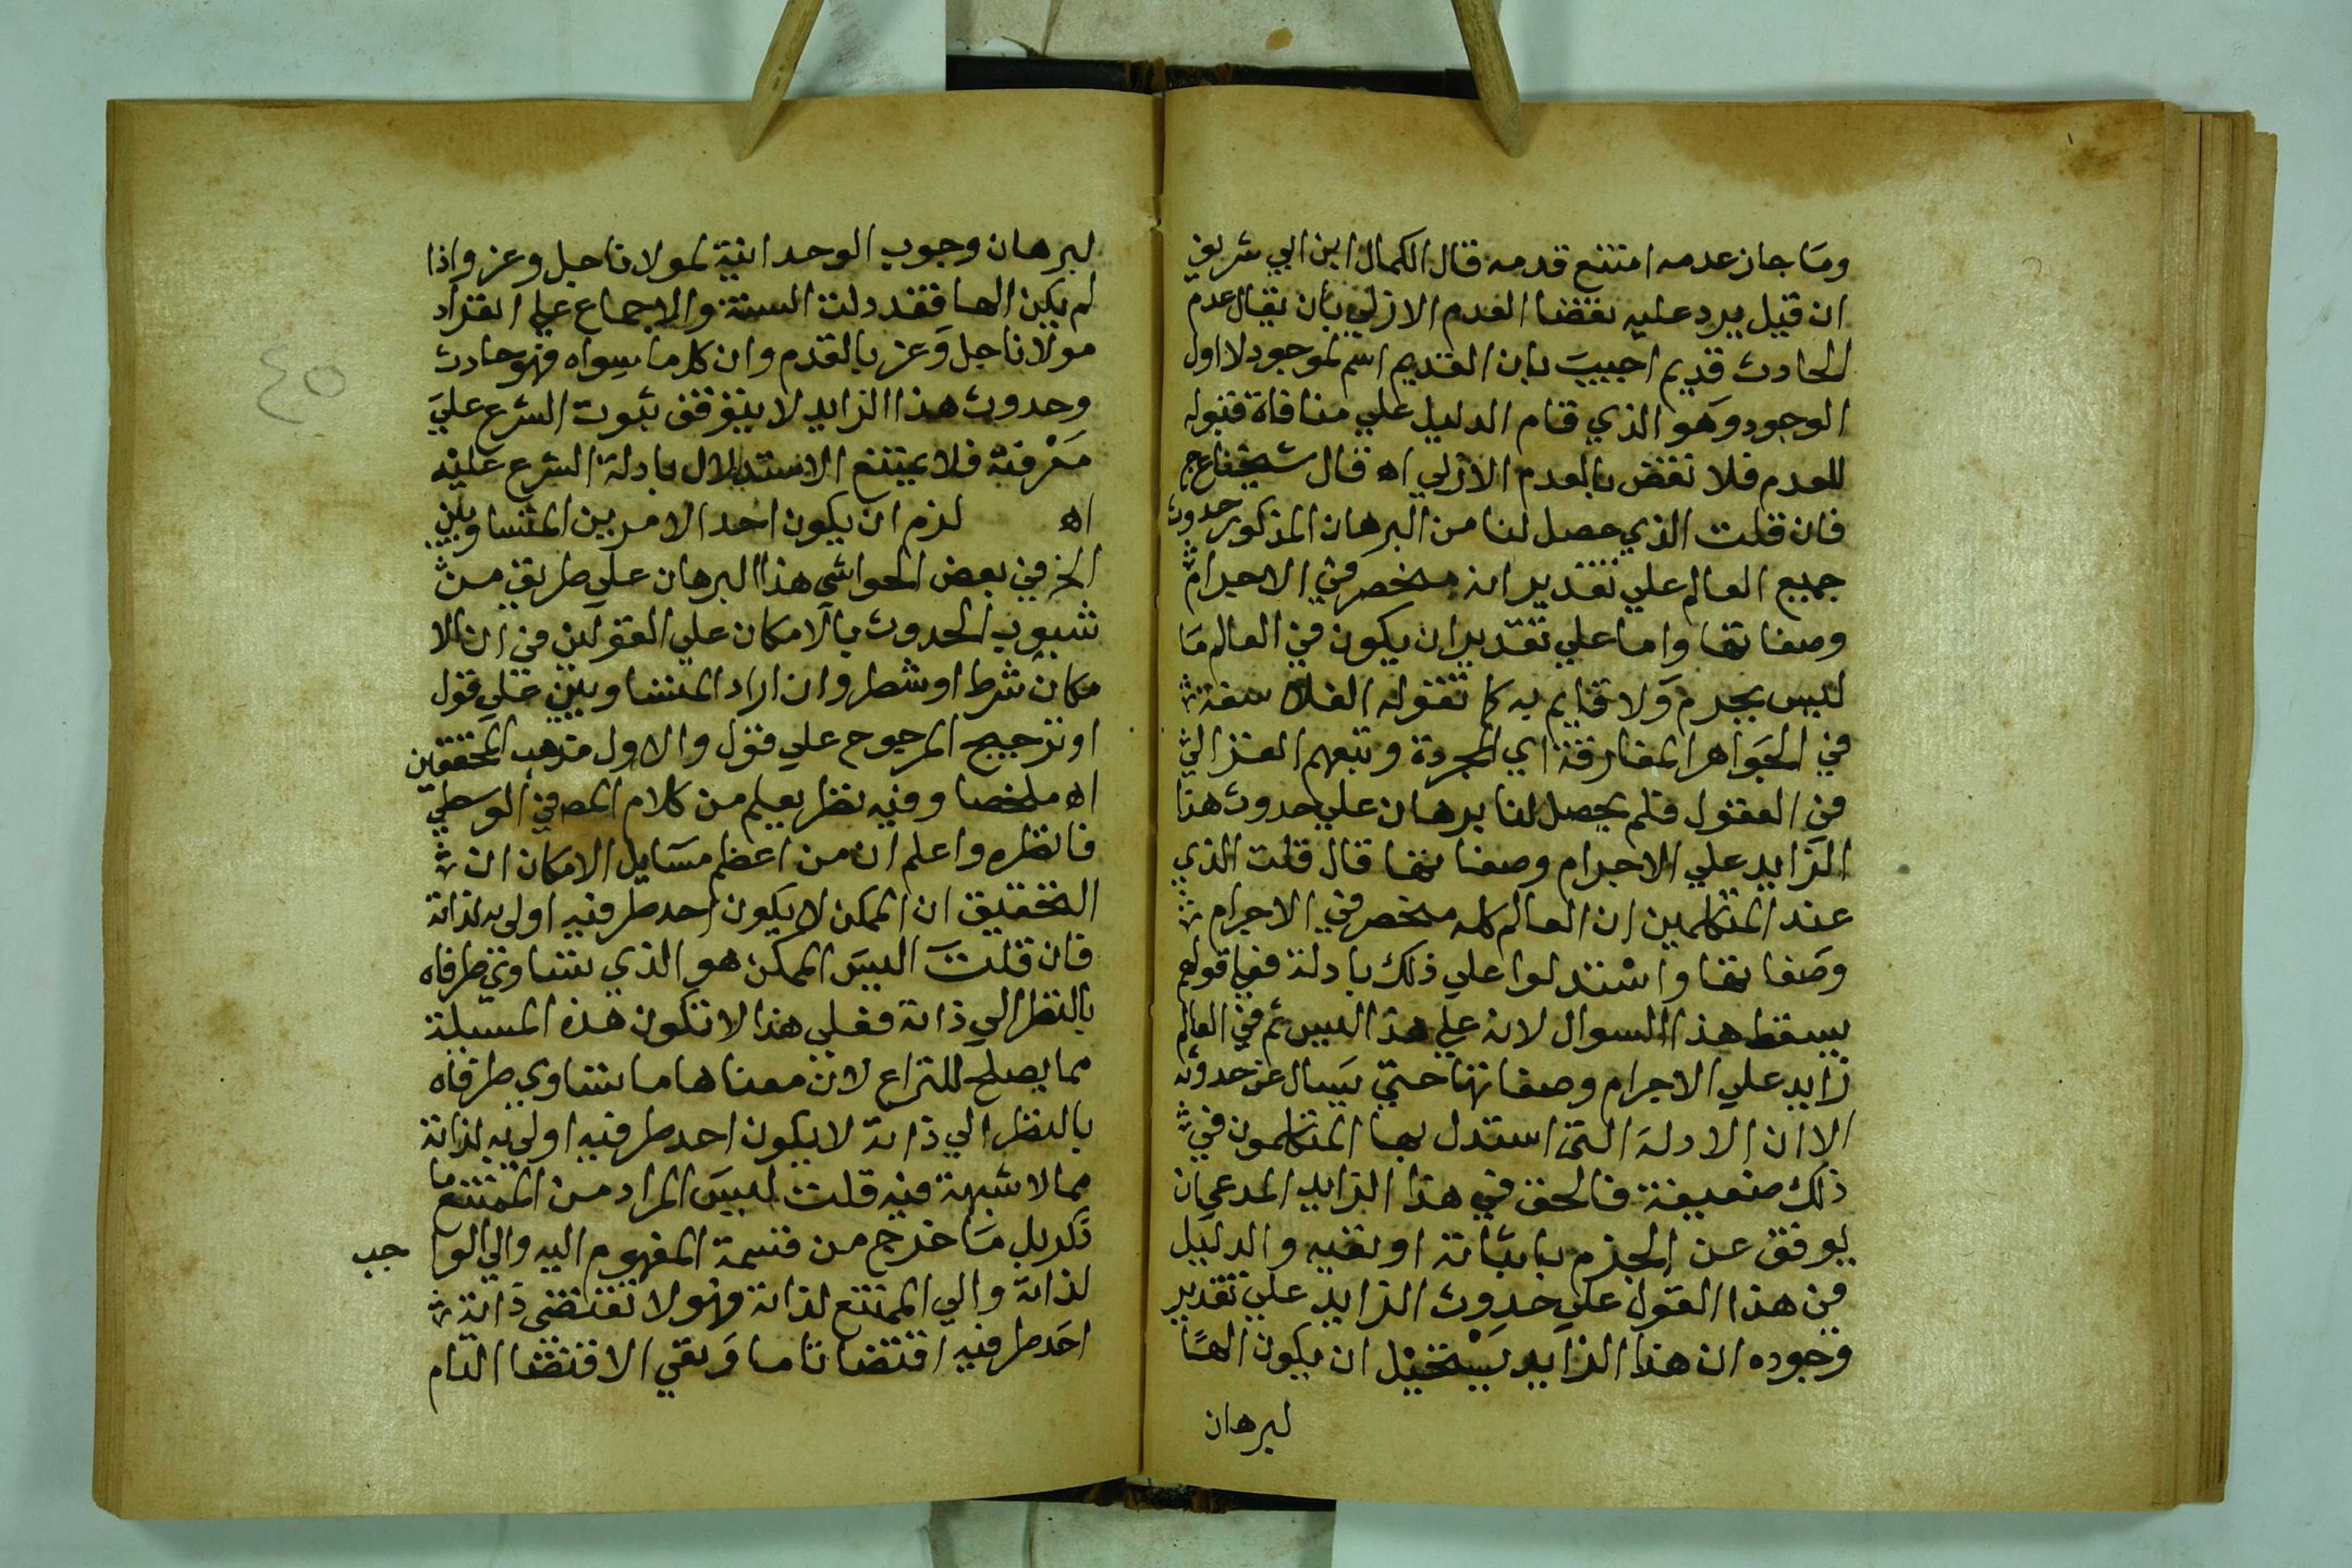 وما جاز عدمه امتنع قدمه قال الكمال ابن ابي شريف
ان قيل يرد عليه نقضا العدم الازلي بان يقال عدم
الحادث قديم اجيب بان القديم اسم لموجود لا اول
الوجود وهو الذي قام الدليل علي منافاة قبوله
للعدم فلا نقض بالعدم الازلي اه قال شيخنا ع ج
فان قلت الذي حصل لنا من البرهان المذكور حدوث
جميع العالم علي تقدير انه منحصر في الاجرام
وصفاتها واما علي تقدير ان يكون في العالم ما
ليس بجرم ولا قايم به كما تقوله الفلاسفة
في الجواهر المفارقة اي المجردة وتبعهم الغزالي
في العقول فلم يحصل لنا برهان علي حدوث هذا
الزايد علي الاجرام وصفاتها قال قلت الذي
عند المتكلمين ان العالم كله منحصر في الاجرام
وصفاتها واستدلوا علي ذلك بادلة فعلي قولهم
يسقط هذا السوال لانه علي هذا ليس ثم في العالم
زايد علي الاجرام وصفاتها حتي يسال عن حدوثه
الا ان الادلة التي استدل بها المتكلمون في
ذلك ضعيفة فالحق في هذا الزايد المدعي ان
يوقف عن الجزم باثباته او نفيه والدليل
من هذا القول علي حدوث الزايد علي تقدير
وجوده ان هذا الزايد يستحيل ان يكون الهًا
لبرهان
لبرهان وجوب الوحدانية لمولانا جل وعز واذا
لم يكن الها فقد دلت السنة والاجماع علي انفراد
مولانا جل وعز بالقدم وان كل ما سواه فهو حادث
وحدوث هذا الزايد لا يتوقف ثبوت الشرع علي
معرفته فلا يمتنع الاستدلال بادلة الشرع عليه
اه لزم ان يكون احد الامرين المتساويين
الخ في بعض الحواشي هذا البرهان علي طريق من
شبوب الحدوث بالامكان علي القولين في ان الا
مكان شرط او شطر وان اراد المتساويين علي قول
او ترجيح المرجوح علي قول والاول مذهب المحققين
اه ملخصا وفيه نظر يعلم من كلام المص في الوسطي
فانظره واعلم ان من اعظم مسايل الامكان ان
التحقيق ان الممكن لا يكون احد طرفيه اولي به لذاته
فان قلت اليس الممكن هو الذي يتساوي طرفاه
بالنظر الي ذاته فعلي هذا لا تكون هذه المسيلة
مما يصلح للنزاع لان معناها ما يتساوي طرفاه
بالنظر الي ذاته لا يكون احد طرفيه اولي به لذاته
مما لا شبهة فيه قلت ليس المراد من الممتنع ما
ذكر بل ما خرج من قسمة المفهوم اليه والي الوا جب
لذاته والي الممتنع لذاته فهو لا تقتضي ذاته
احد طرفيه اقتضا تاما ونفي الاقتضا التام
٤٥